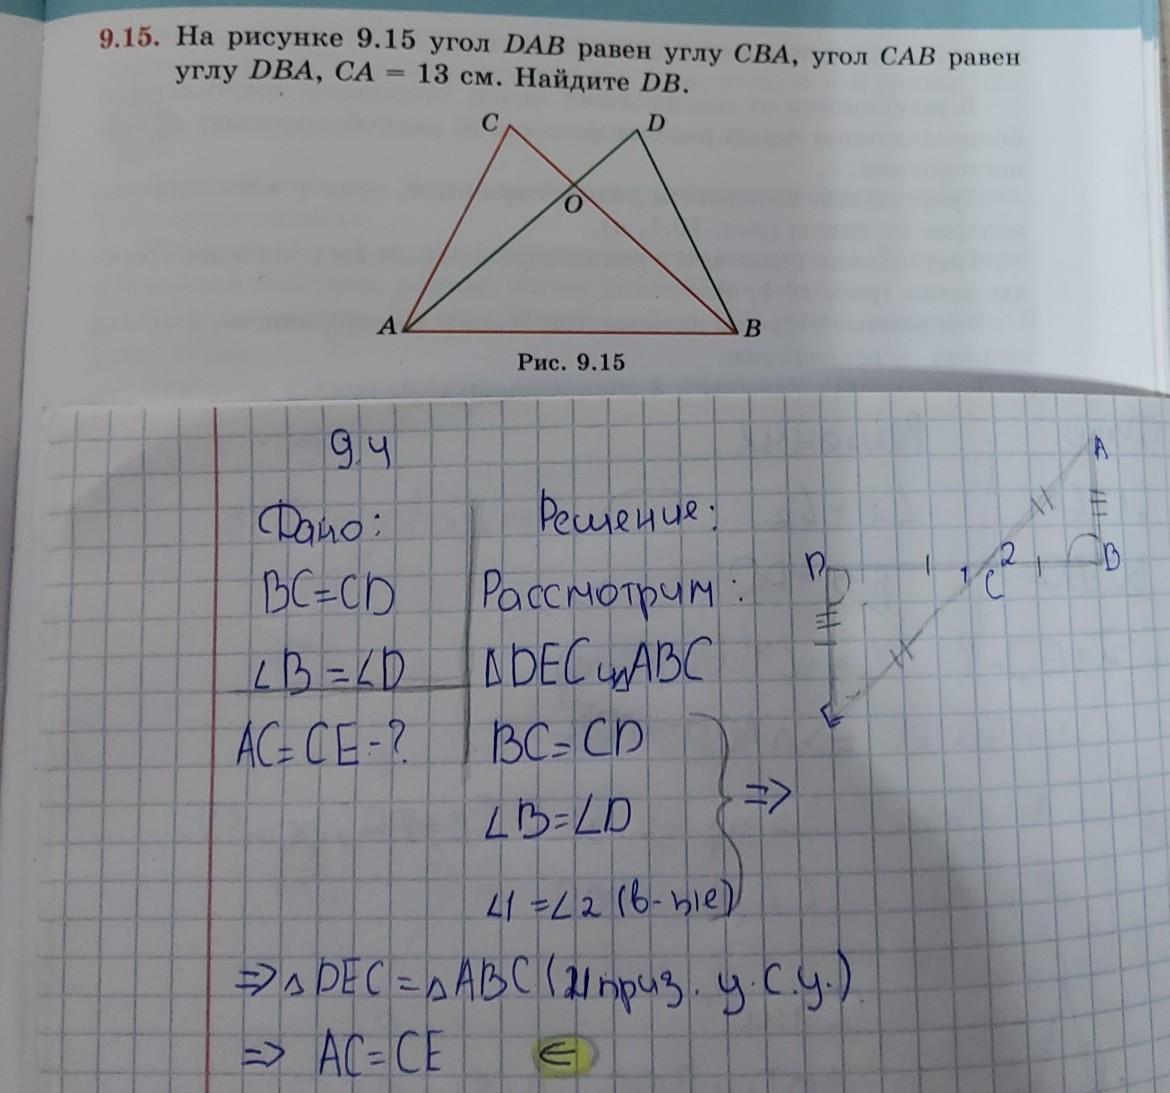 9.15. На рисунке 9.15 угол DAB равен углу CBA, угол CAB равен
углу DBA, CA = 13 см. Найдите DB.
C
D
O
A
B
Рис. 9.15
9.4
Дано:
BC=CD
∠B=∠D
AC=CE-?
Решение:
Рассмотрим:
△DEC и △ABC
BC=CD
∠B=∠D
∠1=∠2 (в-ные)
=>
=> △DEC=△ABC (2 приз. у.с.у.)
=> AC=CE
A
D
1
C
2
B